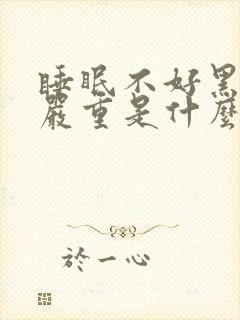 睡眠不好黑
嚴重是什麼
於一心